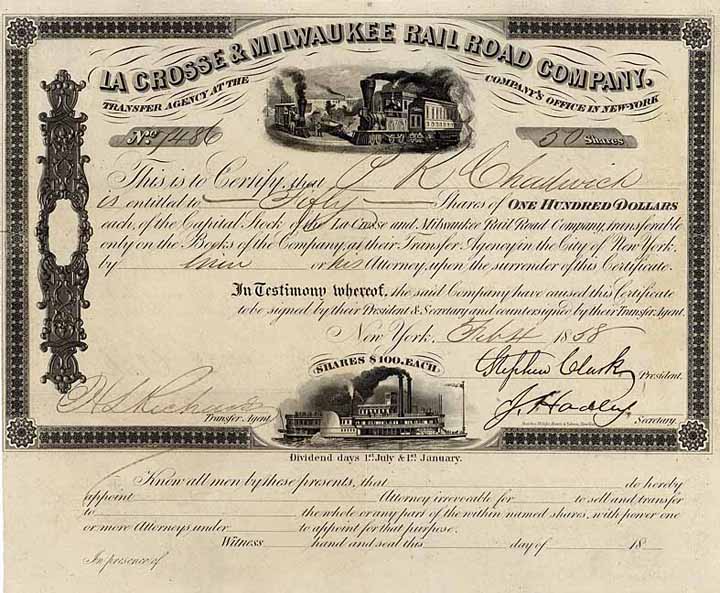 LA CROSSE & MILWAUKEE RAIL ROAD COMPANY.
TRANSFER AGENCY AT THE COMPANY'S OFFICE IN NEW-YORK
No. 1486 50 Shares
This is to Certify, that Chadwick
is entitled to Fifty Shares of ONE HUNDRED DOLLARS
each, of the Capital Stock of the La Crosse and Milwaukee Rail Road Company, transferable
only on the Books of the Company, at their Transfer Agency in the City of New York,
by him or his Attorney, upon the surrender of this Certificate.
In Testimony whereof, the said Company have caused this Certificate
to be signed by their President & Secretary and countersigned by their Transfer Agent.
New York, Feb 4 1858
SHARES $100. EACH
Stephen Clark President.
Transfer Agent
J. Hadley Secretary.
Dividend days 1st July & 1st January.
Know all men by these presents, that do hereby
appoint Attorney irrevocable for to sell and transfer
to the whole or any part of the within named shares, with power one
or more Attorneys under to appoint for that purpose.
Witness hand and seal this day of 18
In presence of